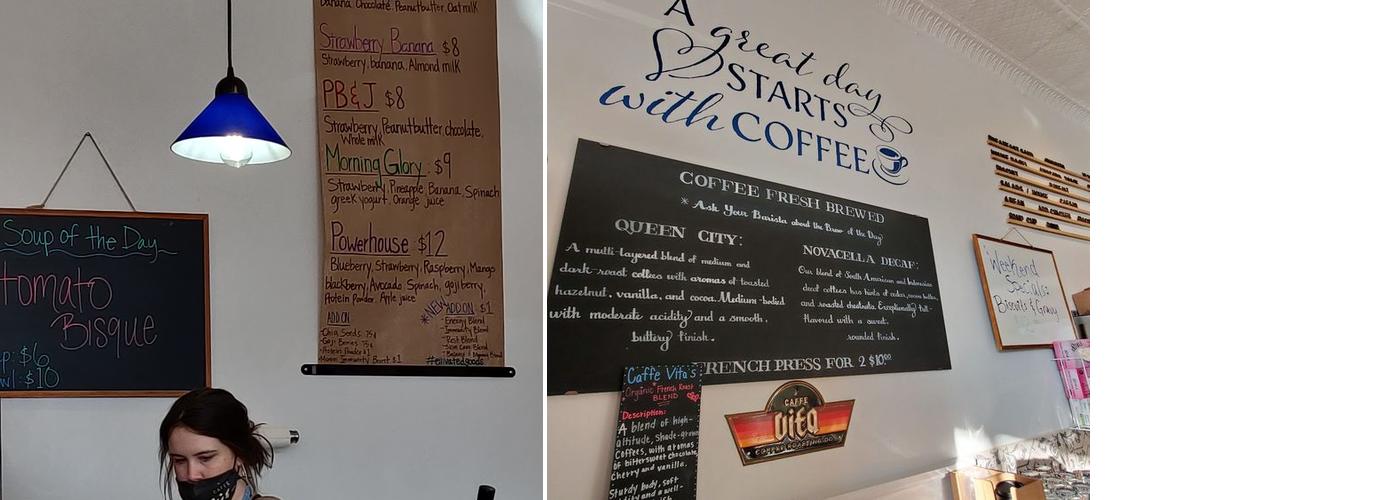 Banana, Chocolate, Peanutbutter, Oat milk
Strawberry Banana $8
Strawberry, banana, Almond milk
PB&J $8
Strawberry, Peanutbutter, chocolate,
Whole milk
Morning Glory: $9
Strawberry, Pineapple, Banana, Spinach
greek yogurt, Orange juice
Powerhouse $12
Blueberry, Strawberry, Raspberry, Mango
blackberry, Avocado, Spinach, goji berry,
Protein Powder, Apple juice
ADD ON
Chia Seeds: 75¢
Goji Berries: 75¢
*NEW ADD ON $1
Energy Blend
Immunity Blend
Rest Blend
Skin Care Blend
#elivatedgoods
Soup of the Day
tomato
Bisque
$6
$10
A great day
STARTS
with COFFEE
COFFEE FRESH BREWED
* Ask Your Barista about the Brew of the Day
QUEEN CITY:
A multi-layered blend of medium and
dark-roast coffees with aromas of toasted
hazelnut, vanilla, and cocoa. Medium-bodied
with moderate acidity and a smooth,
buttery finish.
NOVACELLA DECAF:
Our blend of South American and Indonesian
decaf coffees has hints of cedar, cocoa butter,
and roasted chestnuts. Exceptionally full-
flavored with a sweet,
rounded finish.
FRENCH PRESS FOR 2 $10.00
Caffe Vita's
Organic French Roast
BLEND
Description:
A blend of high-
altitude, Shade-grown
Coffees, with aromas
of bittersweet chocolate,
Cherry and vanilla.
Sturdy body, soft
CAFFE
Vita
COFFEE ROASTING CO.
Weekend
Specials:
Biscuits & Gravy
SOUP CUP